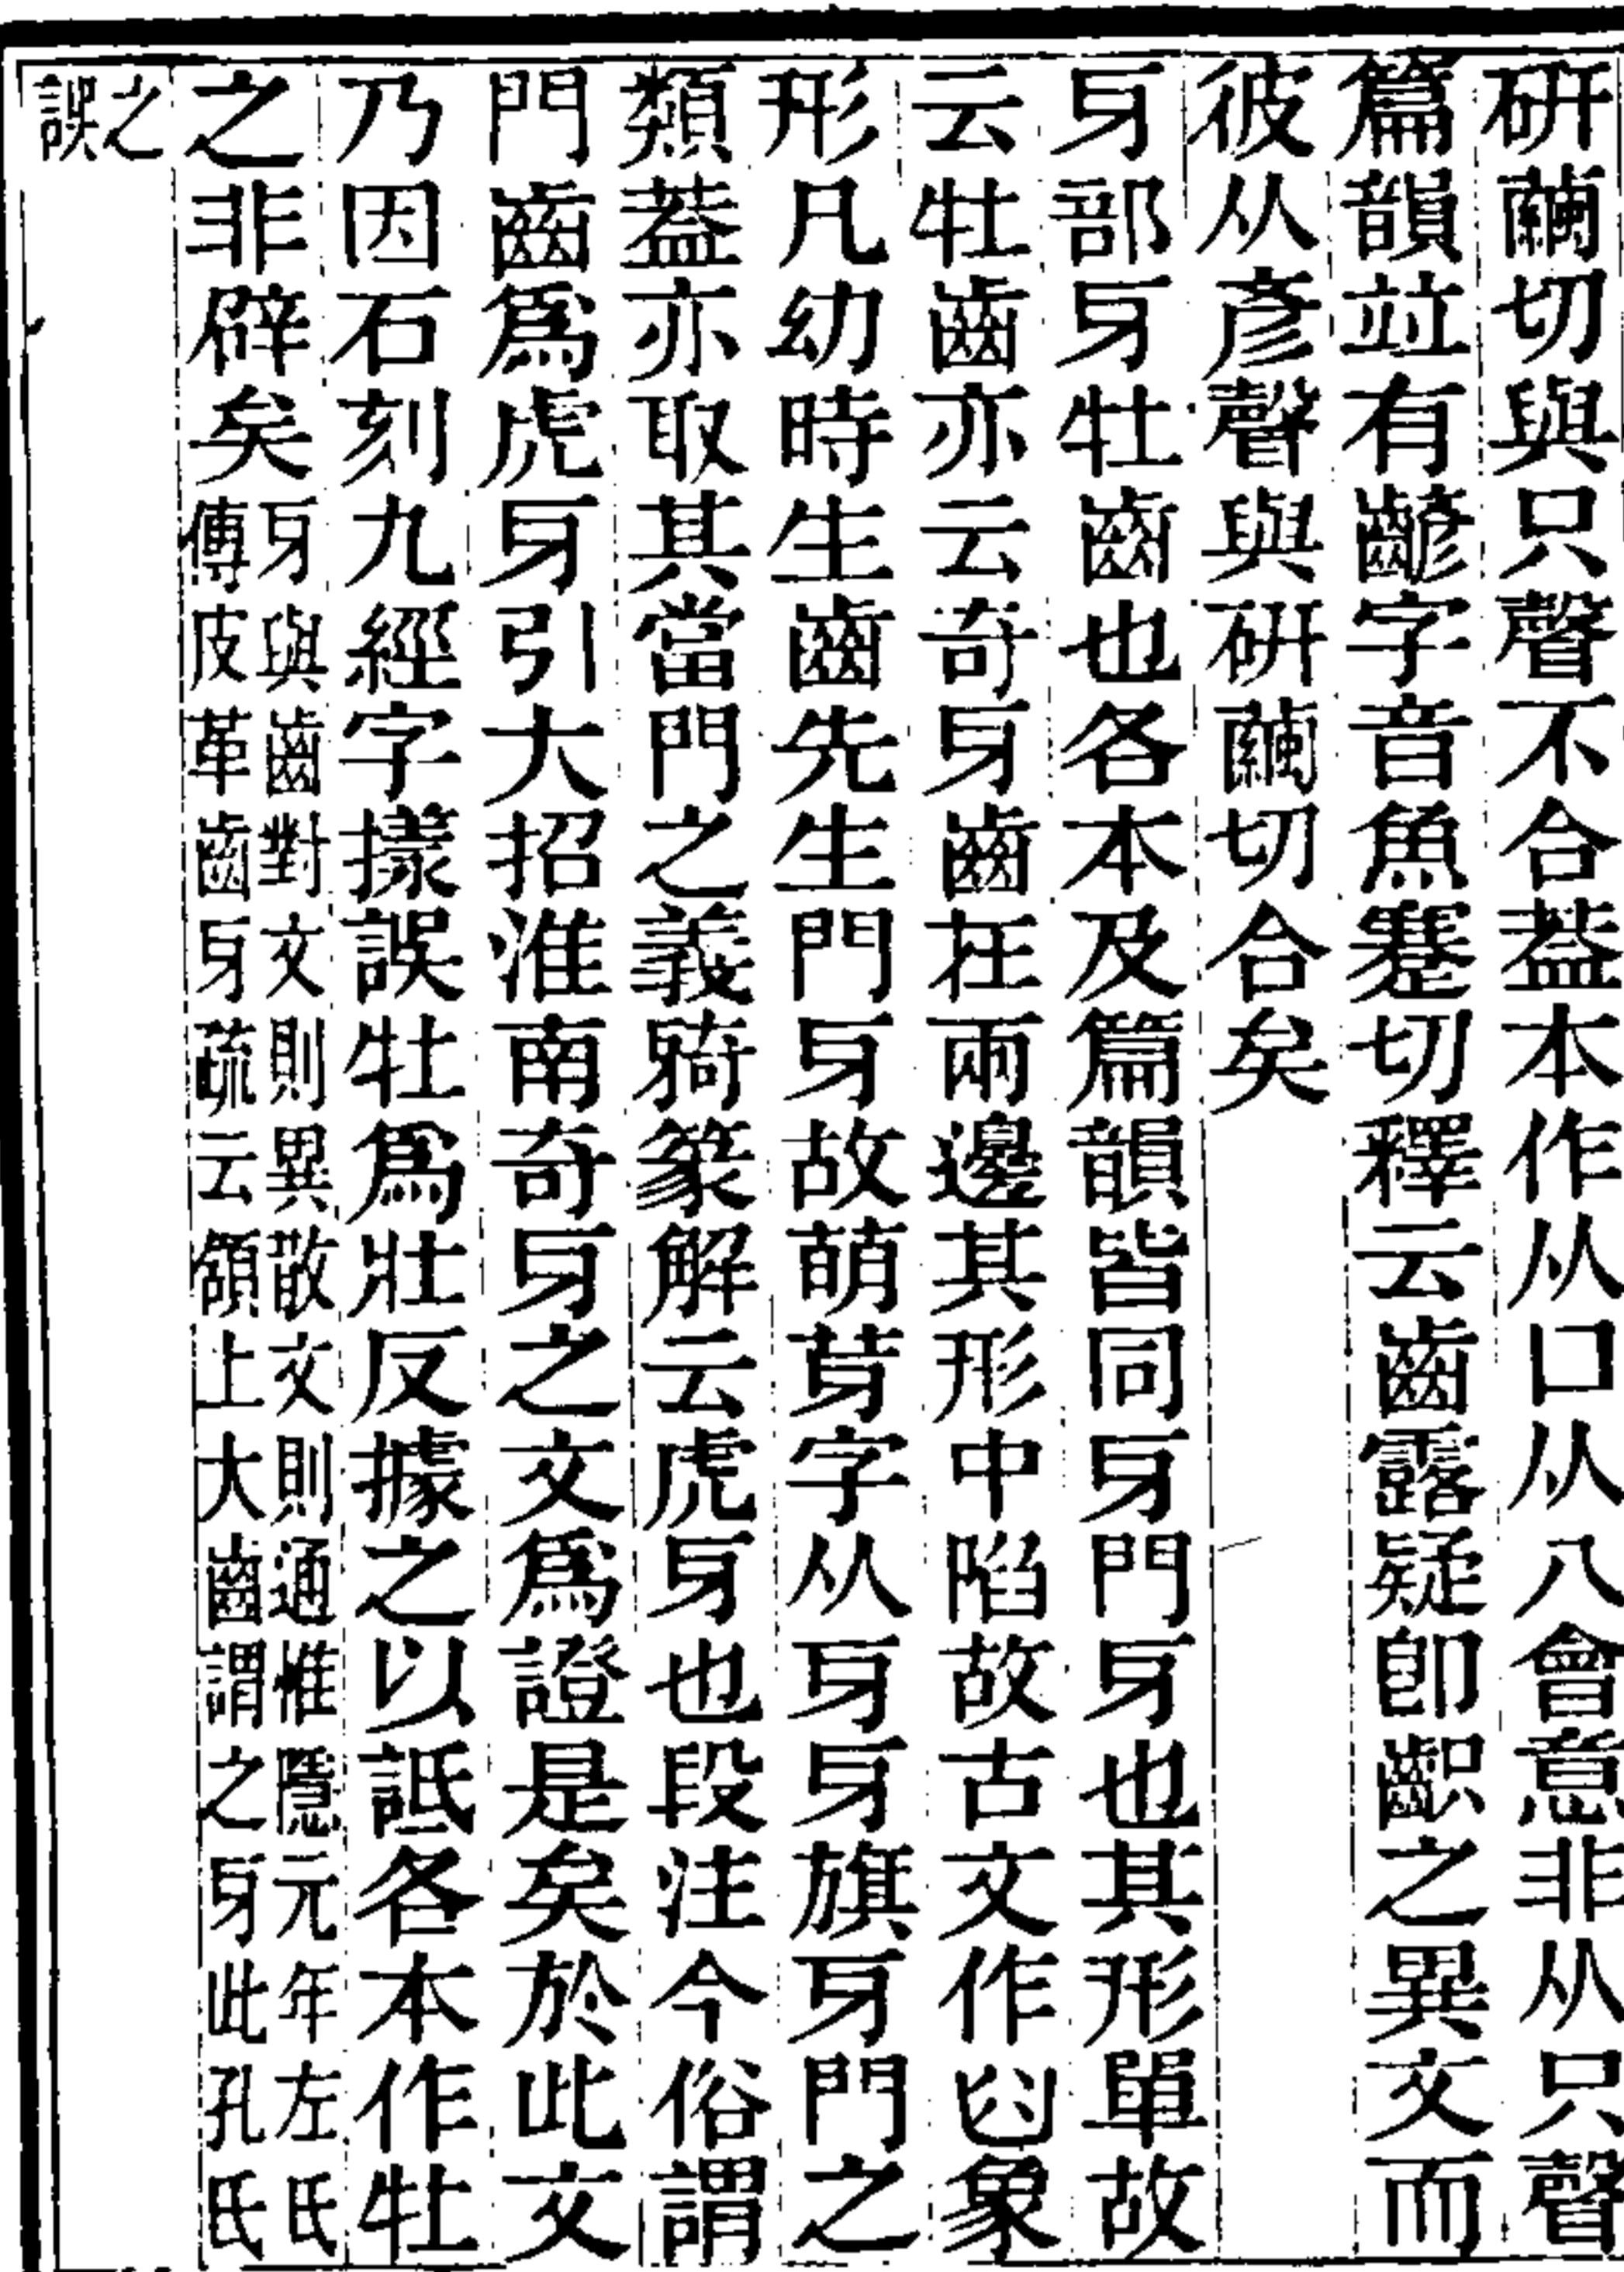 研繭切與只聲不合葢本作从口从八會意非从只聲
篇韻竝有齴字音魚蹇切釋云齒露疑卽齞之異文而
彼从彥聲與研繭切合矣
牙部牙牡齒也各本及篇韻皆同牙門牙也其形單故
云牡齒亦云奇牙齒在兩邊其形中陷故古文作𠚒象
形凡幼時生齒先生門牙故萌芽字从牙牙旗牙門之
類葢亦取其當門之義㸦篆解云虎牙也段注今俗謂
門齒爲虎牙引大招淮南奇牙之文爲證是矣於此文
乃因石刻九經字㨾誤牡爲壯反據之以詆各本作牡
之非辟矣牙與齒對文則異散文則通惟隱元年左氏
傳皮革齒牙疏云頷上大齒謂之牙此孔氏
之
誤